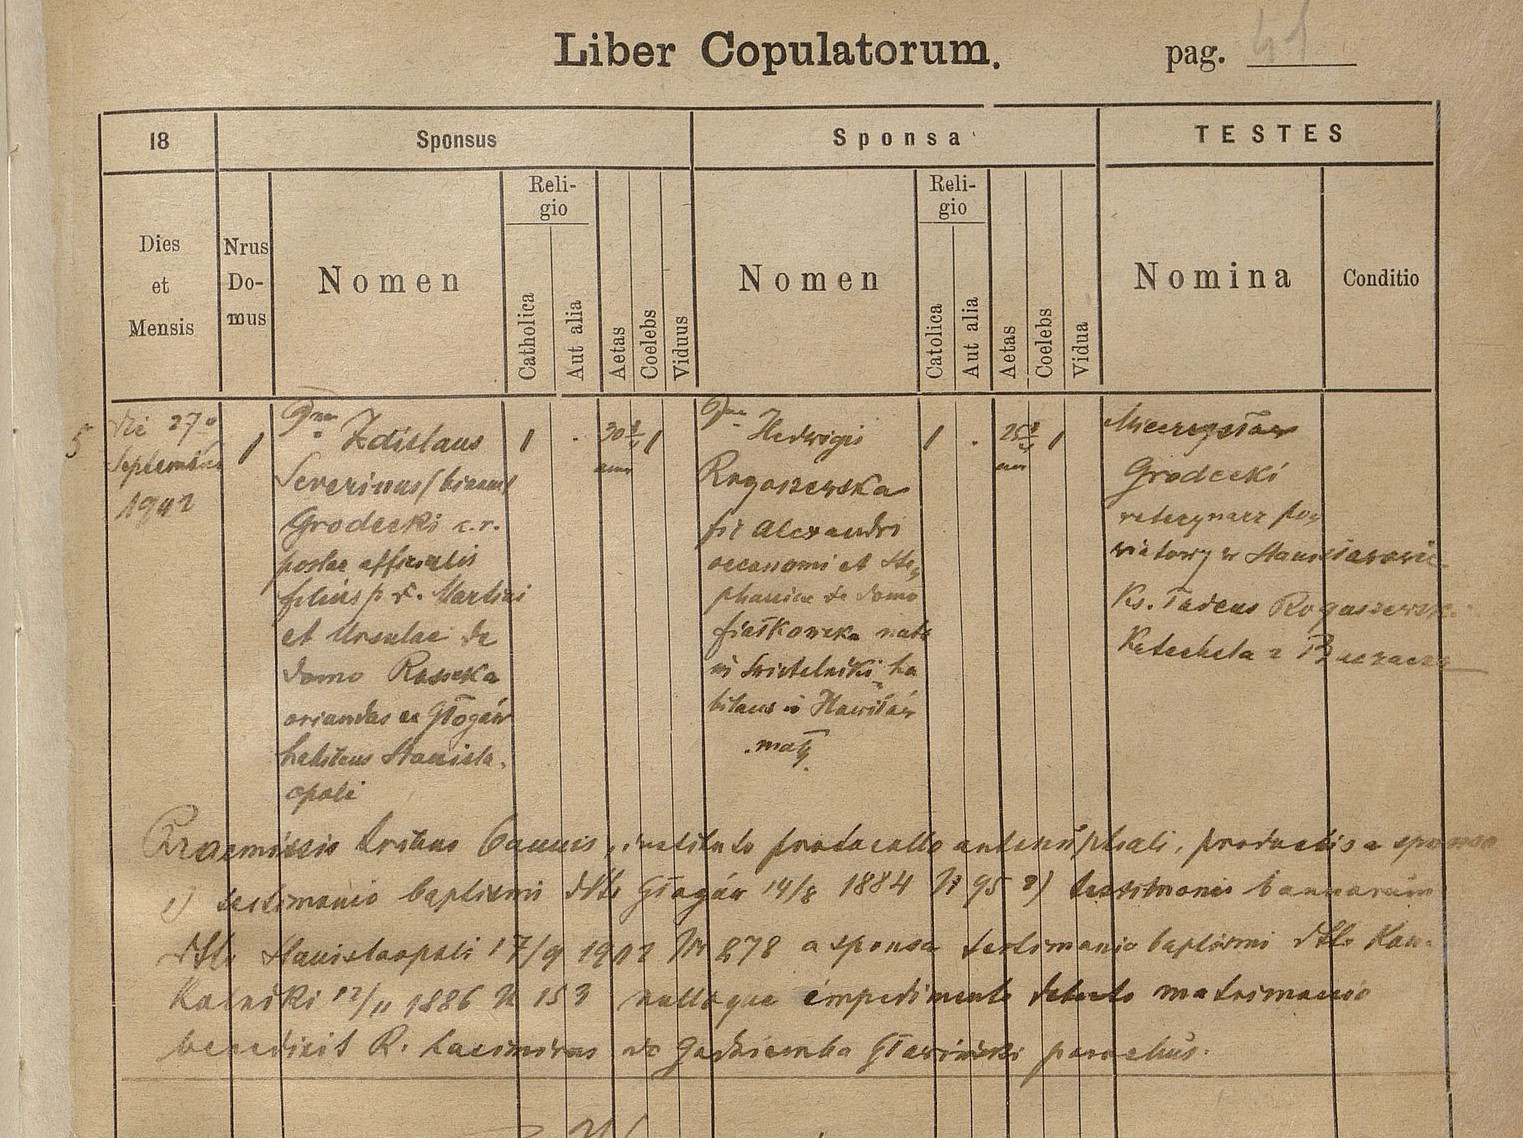 Liber Copulatorum.
pag. 45
18
Sponsus
Sponsa
TESTES
Dies
et
Mensis
Nrus
Do-
mus
Nomen
Reli-
gio
Catholica
Aut alia
Aetas
Coelebs
Viduus
Nomen
Reli-
gio
Catolica
Aut alia
Aetas
Coelebs
Vidua
Nomina
Conditio
5
die 27
Septembris
1912
Zdislaus
Severinus
Grodecki c.r.
postae officialis
filius p. d. Martini
et Ursulae de
domo
oriundus ex Głogów
habitans Stanisla-
opoli
30
Hedvigis
Rogoszewska
fil Alexandri
oeconomi et Ste-
phaniae de domo
Fiałkowska nata
in Świtelniki ha
bitans in
mały
25
Mieczysław
Grodecki
veterynarz po-
wiatowy w Stanisławowie
Ks. Tadeus Rogoszewski
Katecheta z Buczacza
Praemissis tribus bannis, instituto protocollo antenuptiali, productis a sponso
1) testimonio baptismi dtto Głogów 14/8 1884 N 95 2) testimonio bannorum
dtto Stanislaopoli 17/9 1912 Nr 878 a sponsa testimonio baptismi dtto Kon-
12/11 1886 N 153 nulloque impedimento detecto matrimonio
benedixit R. Casimirus de parochus.